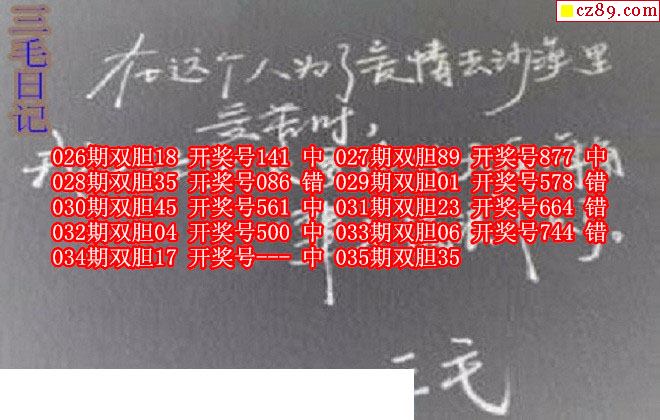 cz89.com
三毛日记
在这个人为了爱情去沙漠里
受苦时,
026期双胆18 开奖号141 中 027期双胆89 开奖号877 中
028期双胆35 开奖号086 错 029期双胆01 开奖号578 错
030期双胆45 开奖号561 中 031期双胆23 开奖号664 错
032期双胆04 开奖号500 中 033期双胆06 开奖号744 错
034期双胆17 开奖号--- 中 035期双胆35
三毛